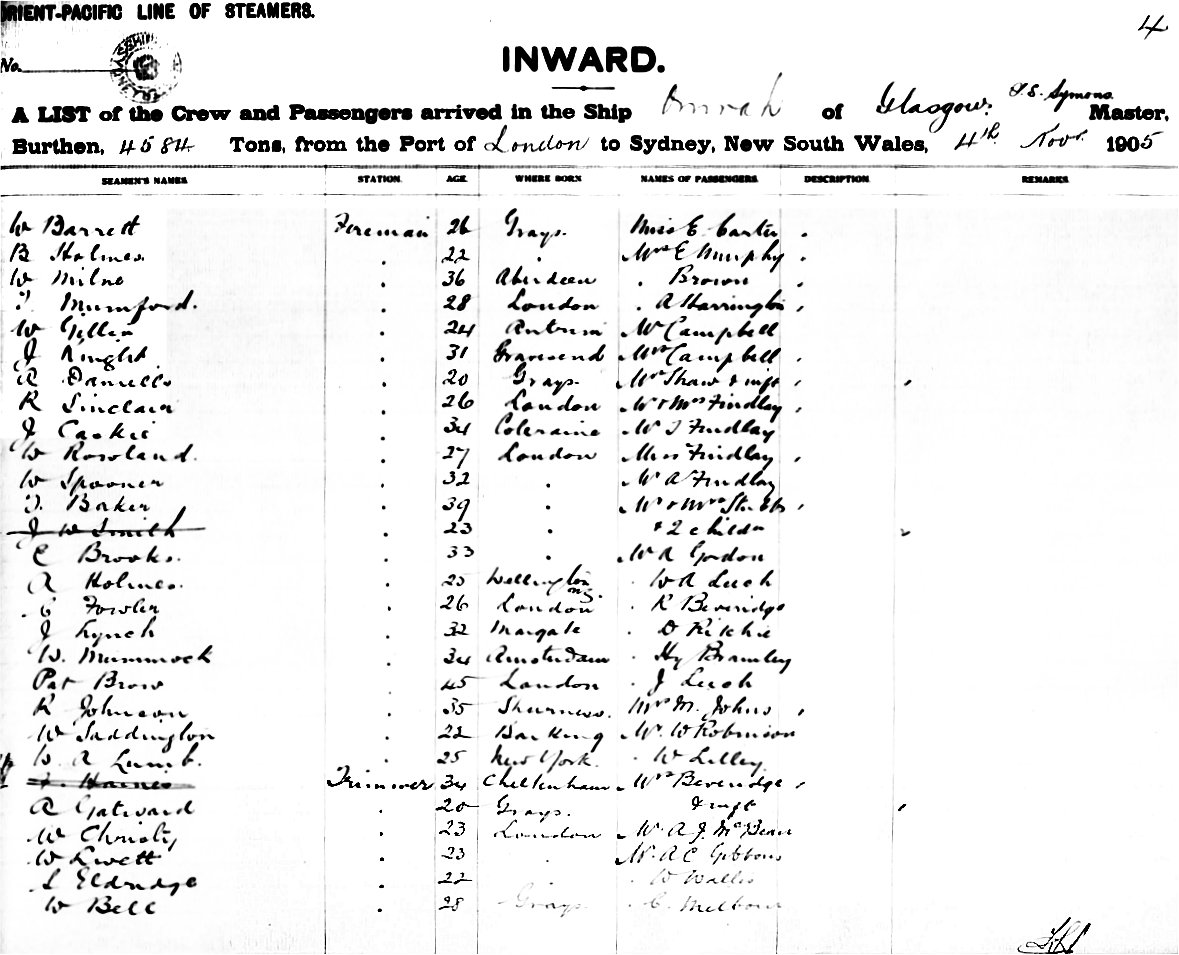 ORIENT-PACIFIC LINE OF STEAMERS.
4
No.
INWARD.
A LIST of the Crew and Passengers arrived in the Ship Omrah of Glasgow. Symons Master,
Burthen, 4584 Tons, from the Port of London to Sydney, New South Wales, 4th Novr. 1905
SEAMEN'S NAMES. STATION. AGE. WHERE BORN NAMES OF PASSENGERS. DESCRIPTION. REMARKS
W Barrett Fireman 26 Grays. Miss E. Carter
B Holmes 22 Mrs E Murphy
W Milne 36 Aberdeen Brown
T. Mumford. 28 London A Harrington
W 24 Antrim Mr Campbell
J Knight 31 Gravesend Mrs Campbell
R Daniells 20 Grays. Mrs Shaw & inft
R Sinclair 26 London Mr & Mrs Findlay
J Caskie 34 Coleraine Mr J Findlay
W Rowland. 27 London Miss Findlay
W Spooner 32 Mr A Findlay
T. Baker 39 Mr & Mrs Stubbs
J W Smith 23 & 2 childn
C Brooks. 33 Mr A Gordon
A Holmes. 25 Wellington W A Leech
C Fowler 26 London R Beveridge
J Lynch 32 Margate D Ritchie
W. Mummock 34 Amsterdam Hy Bramley
Pat Brow 45 London J Leech
R Johnson 35 Sheerness. Mrs M. Johns
W Saddington 22 Barking Mr. W Robinson
W A Lumb. 25 New York. W Lilley
Haines Trimmer 34 Cheltenham Mrs Beveridge
A Gatward 20 Grays. & inft
W Christy 23 London Mr. A J. McBean
W Livett 23 Mr. A C Gibbons
L Eldridge 22 W Wallis
W Bell 28 Grays C. Melbour